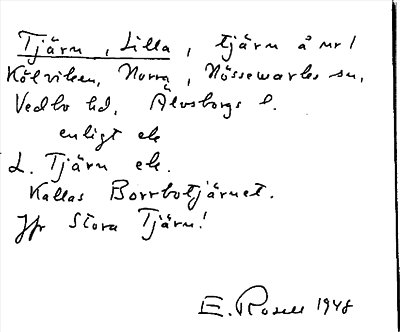 Tjärn, Lilla, tjärn å nr 1
Kölviken, Norra, Nössemarks sn,
Vedbo hd, Älvsborgs l.
enligt ek
L. Tjärn ek.
Kallas Borrbotjärnet.
Jfr Stora Tjärn!
E. Rosell 1948